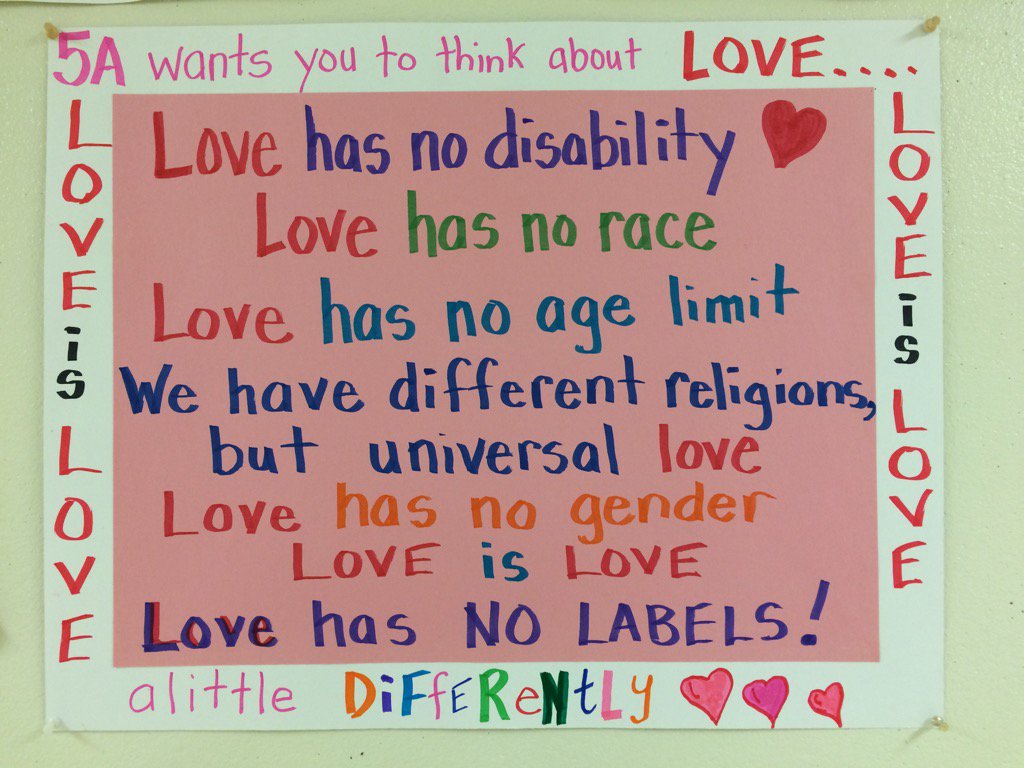 5A wants you to think about LOVE....
LOVE is LOVE
Love has no disability
Love has no race
Love has no age limit
We have different religions,
but universal love
Love has no gender
LOVE is LOVE
Love has NO LABELS!
LOVE is LOVE
a little DiFfeReNtLy